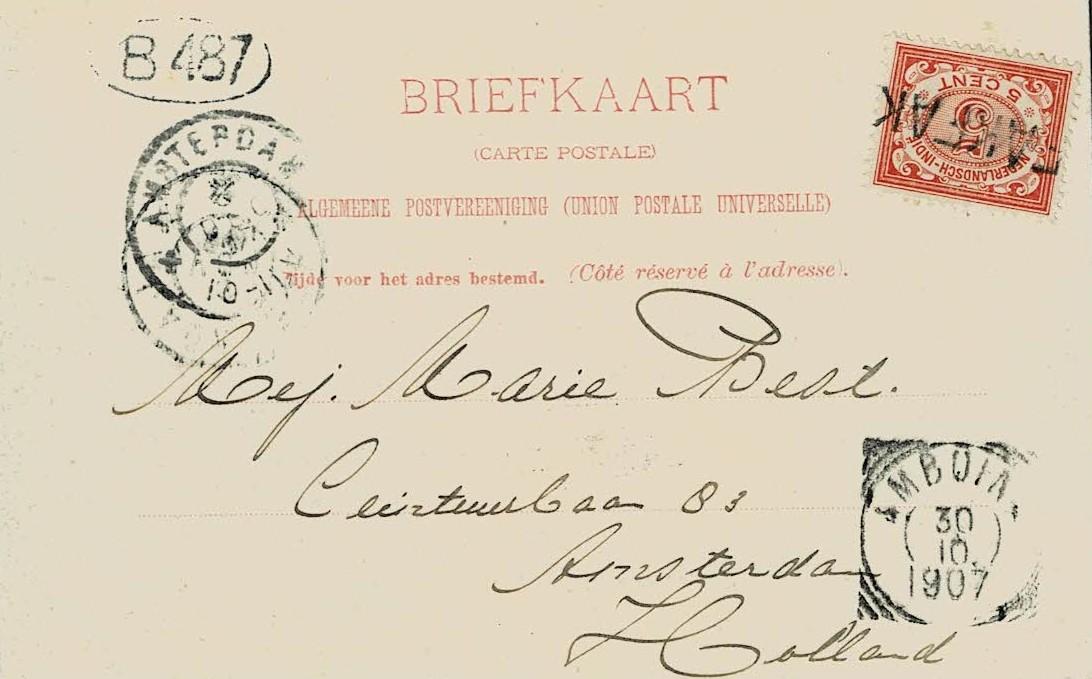 B 487
BRIEFKAART
(CARTE POSTALE)
ALGEMEENE POSTVEREENIGING (UNION POSTALE UNIVERSELLE)
Zijde voor het adres bestemd. (Côté réservé à l'adresse).
5 CENT
5
NEDERLANDSCH-INDIË
FAKFAK
AMSTERDAM
Mej. Marie Best.
Ceintuurbaan 83
Amsterdam
Holland
AMBOINA
30
10
1907